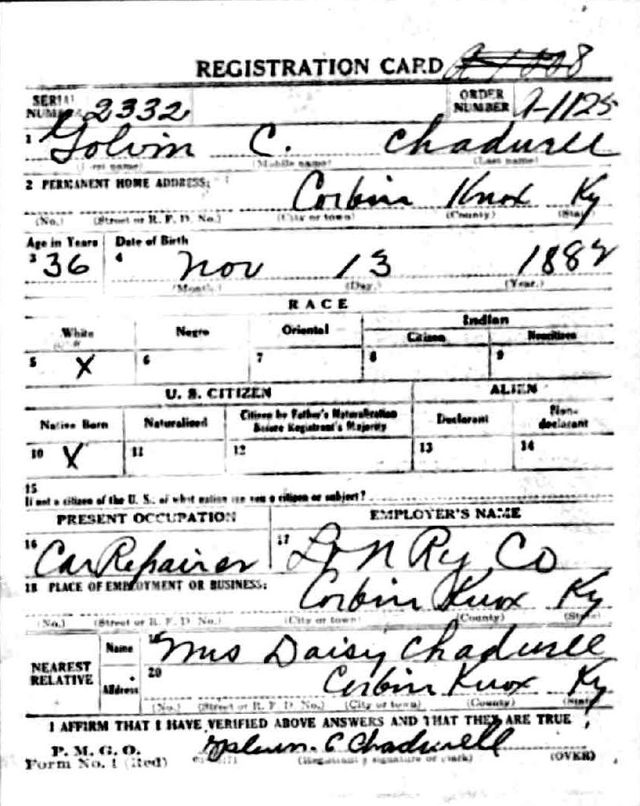 REGISTRATION CARD
SERIAL NUMBER 2332 ORDER NUMBER A-1125
1 Golvin C. Chadwell
(First name) (Middle name) (Last name)
2 PERMANENT HOME ADDRESS:
Corbin Knox Ky
(No.) (Street or R. F. D. No.) (City or town) (County) (State)
Age in Years Date of Birth
3 36 4 Nov 13 1882
(Month.) (Day.) (Year.)
RACE
White Negro Oriental Indian
Citizen Noncitizen
5 X 6 7 8 9
U. S. CITIZEN ALIEN
Native Born Naturalized Citizen by Father's Naturalization Before Registrant's Majority Declarant Non-declarant
10 X 11 12 13 14
15
If not a citizen of the U. S., of what nation are you a citizen or subject?
PRESENT OCCUPATION EMPLOYER'S NAME
16 Car Repairer 17 L & N Ry Co
18 PLACE OF EMPLOYMENT OR BUSINESS:
Corbin Knox Ky
(No.) (Street or R. F. D. No.) (City or town) (County) (State)
NEAREST RELATIVE
Name 19 Mrs Daisy Chadwell
Address 20 Corbin Knox Ky
(No.) (Street or R. F. D. No.) (City or town) (County) (State)
I AFFIRM THAT I HAVE VERIFIED ABOVE ANSWERS AND THAT THEY ARE TRUE
P. M. G. O.
Form No. 1 (Red) C Chadwell
(Registrant's signature or mark) (OVER)